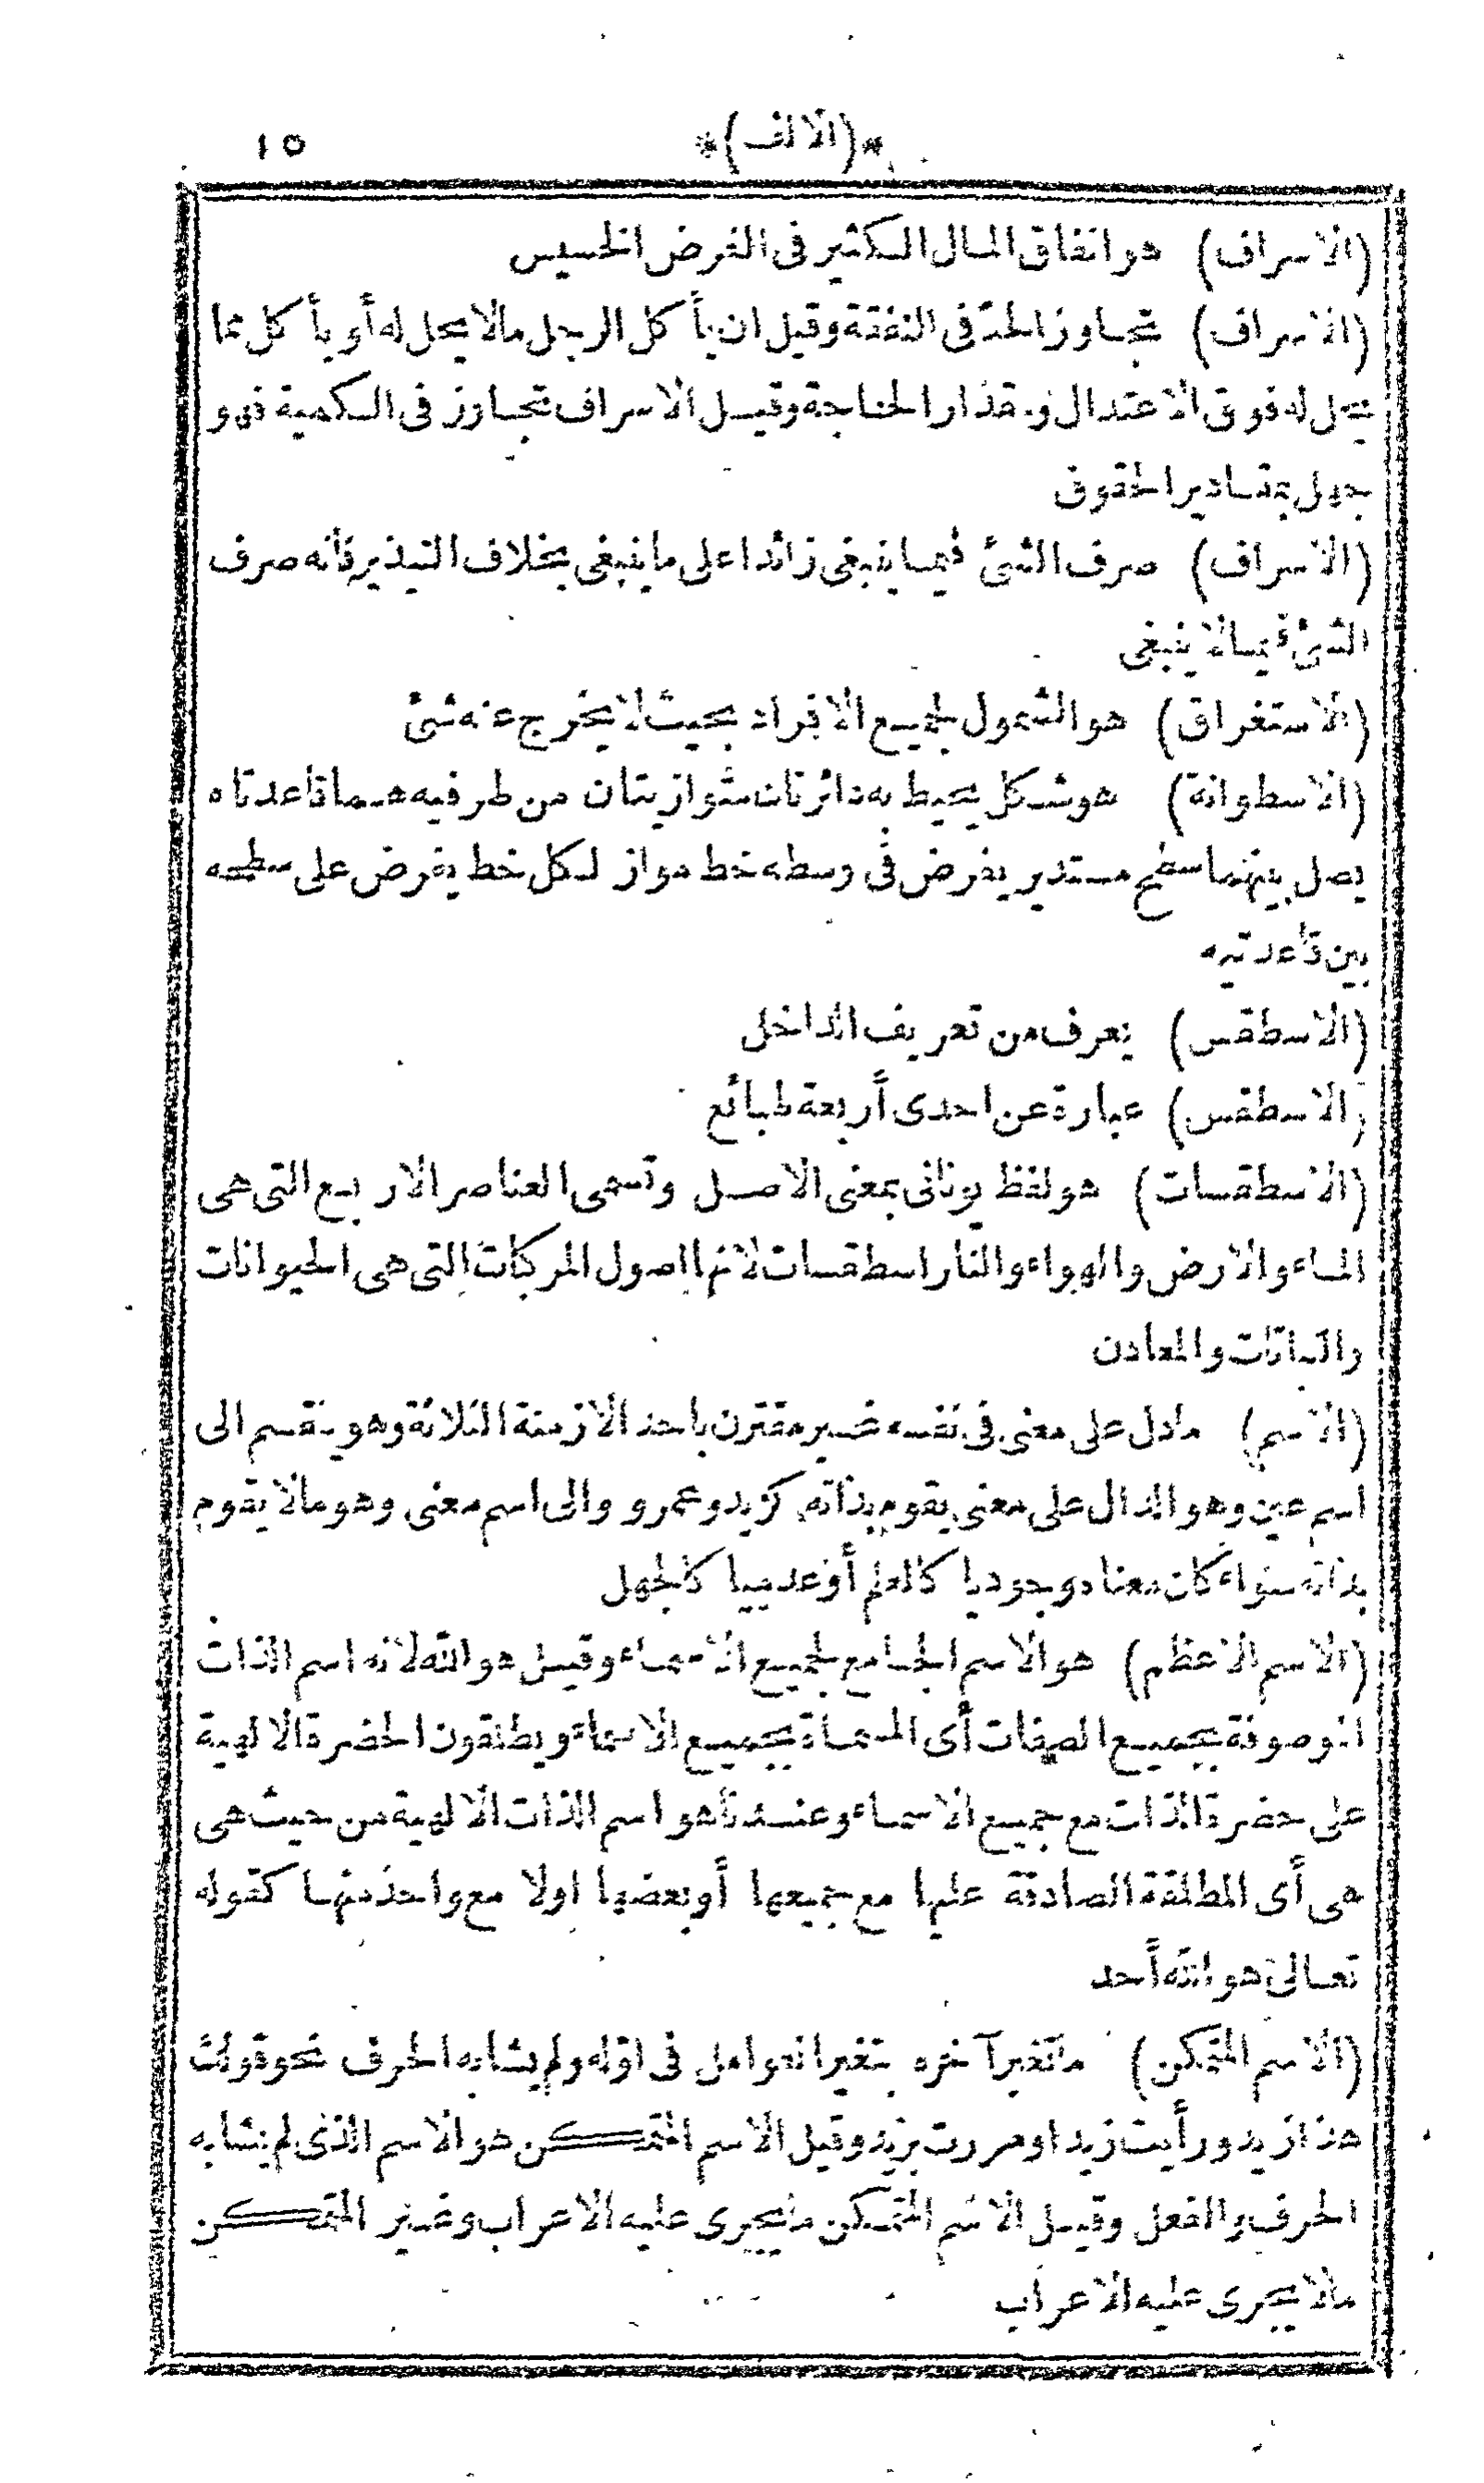 *(الالف)* ١٥
(الاسراف) هو انفاق المال الكثير فى الغرض الخسيس
(الاسراف) تجاوز الحدّ فى النفقة وقيل ان يأكل الرجل مالا يحل له أو يأكل مما
يحل له فوق الاعتدال ومقدار الحاجة وقيل الاسراف تجاوز فى الكمية فهو
جهل بمقادير الحقوق
(الاسراف) صرف الشئ فيما ينبغى زائدا على ما ينبغى بخلاف التبذير فانه صرف
الشئ فيما لا ينبغى
(الاستغراق) هو الشمول لجميع الافراد بحيث لا يخرج عنه شئ
(الاسطوانة) هو شكل يحيط به دائرتان متوازيتان من طرفيه هما قاعدتاه
يصل بينهما سطح مستدير يفرض فى وسطه خط مواز لكل خط يفرض على سطحه
بين قاعدتيه
(الاسطقس) يعرف من تعريف الداخل
(الاسطقس) عبارة عن احدى أربعة طبائع
(الاسطقسات) هو لفظ يونانى بمعنى الاصل وتسمى العناصر الاربع التى هى
الماء والارض والهواء والنار اسطقسات لانها اصول المركبات التى هى الحيوانات
والنباتات والمعادن
(الاسم) مادل على معنى فى نفسه غير مقترن باحد الازمنة الثلاثة وهو ينقسم الى
اسم عين وهو الدال على معنى يقوم بذاته كزيد وعمرو والى اسم معنى وهو مالا يقوم
بذاته سواء كان معناه وجوديا كالعلم أو عدميا كالجهل
(الاسم الاعظم) هو الاسم الجامع لجميع الاسماء وقيل هو الله لانه اسم الذات
الموصوفة بجميع الصفات أى المسماة بجميع الاسماء ويطلقون الحضرة الالهية
على حضرة الذات مع جميع الاسماء وعندنا هو اسم الذات الالهية من حيث هى
هى أى المطلقة الصادقة عليها مع جميعها أو بعضها اولا مع واحد منها كقوله
تعالى هو الله أحد
(الاسم المتمكن) ما تغير آخره بتغير العوامل فى اوّله ولم يشابه الحرف نحو قولك
هذا زيد ورأيت زيدا ومررت بزيد وقيل الاسم المتمكن هو الاسم الذى لم يشابه
الحرف والفعل وقيل الاسم المتمكن ما يجرى عليه الاعراب وغير المتمكن
مالا يجرى عليه الاعراب